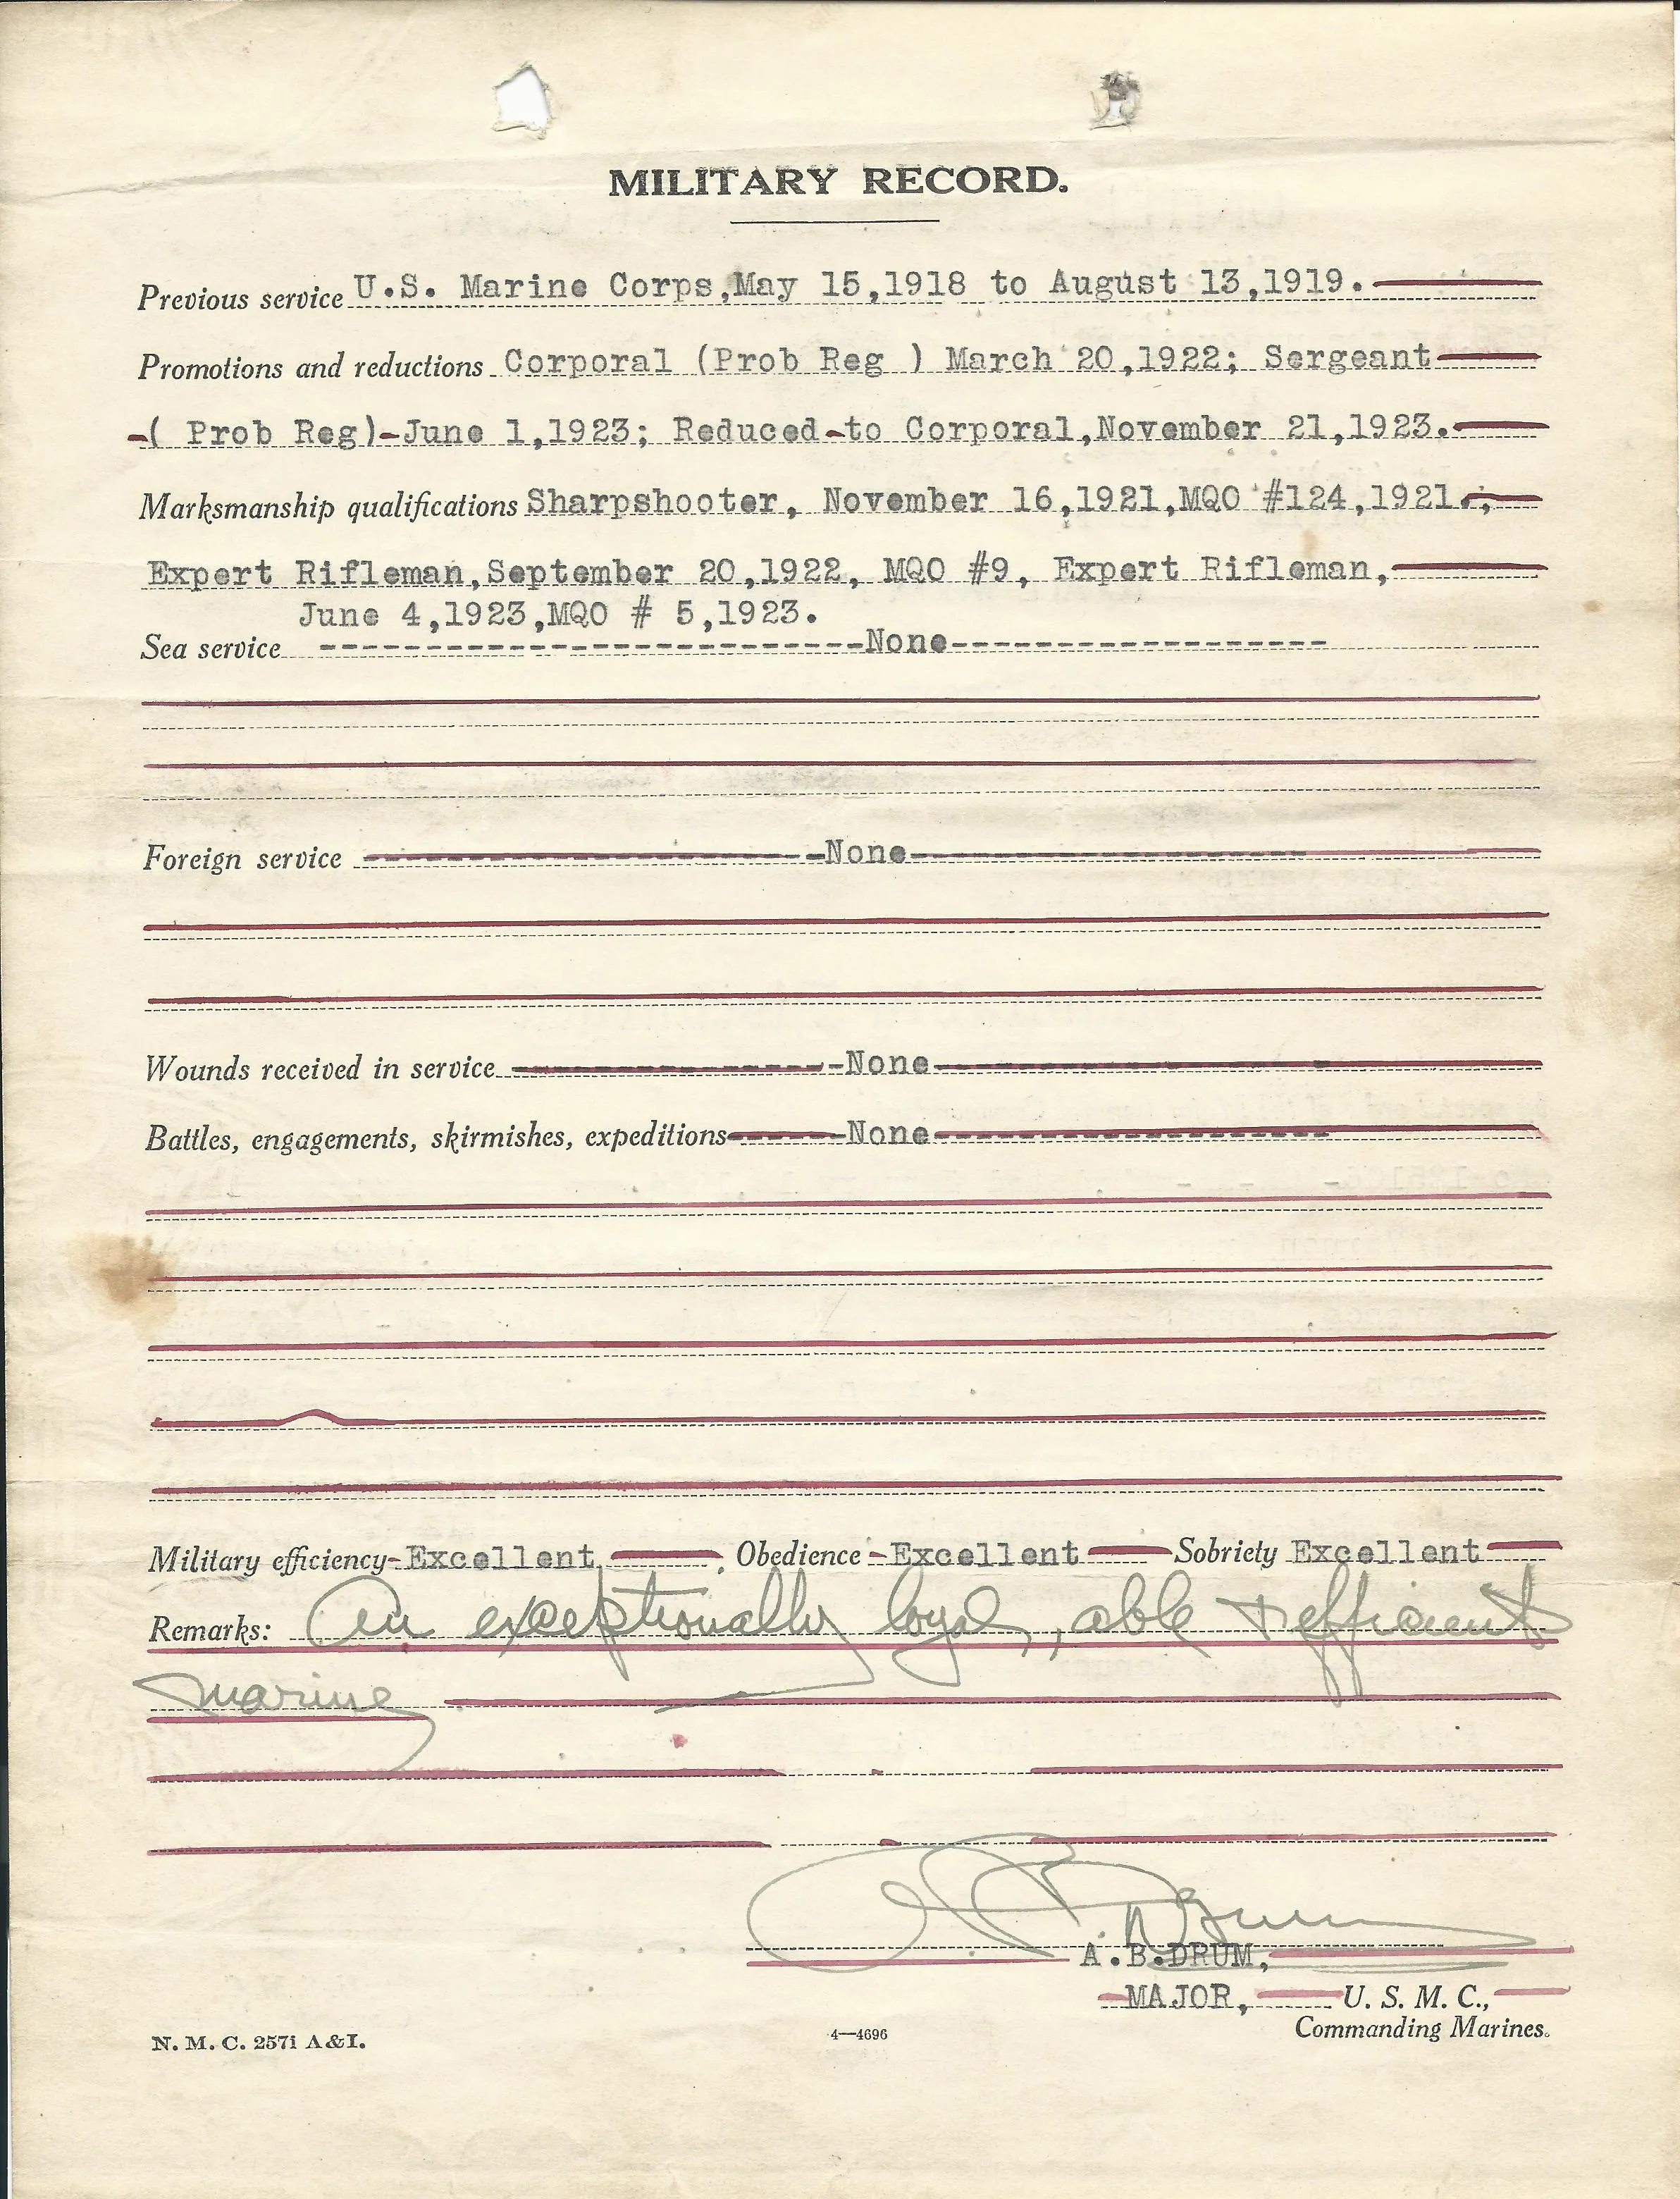 MILITARY RECORD.
Previous service U.S. Marine Corps,May 15,1918 to August 13,1919.
Promotions and reductions Corporal (Prob Reg ) March 20,1922; Sergeant
( Prob Reg)-June 1,1923; Reduced-to Corporal,November 21,1923.
Marksmanship qualifications Sharpshooter, November 16,1921,MQO #124,1921.;
Expert Rifleman,September 20,1922, MQO #9, Expert Rifleman,
June 4,1923,MQO # 5,1923.
Sea service --------------------------None------------------
Foreign service ----------------------None-------------------
Wounds received in service ---------------None-------------------
Battles, engagements, skirmishes, expeditions------None-------------------
Military efficiency-Excellent, . Obedience-Excellent Sobriety Excellent
Remarks: An exceptionally loyal, able + efficient
marine
A B Drum
A.B.DRUM,
MAJOR, U. S. M. C.,
Commanding Marines.
N. M. C. 257i A&I.
4—4696